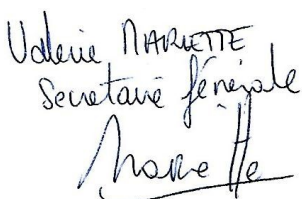 Valerie MARIETTE
Secretaire générale
Mariette